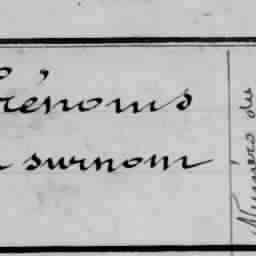 rénoms
surnom
Numéro du